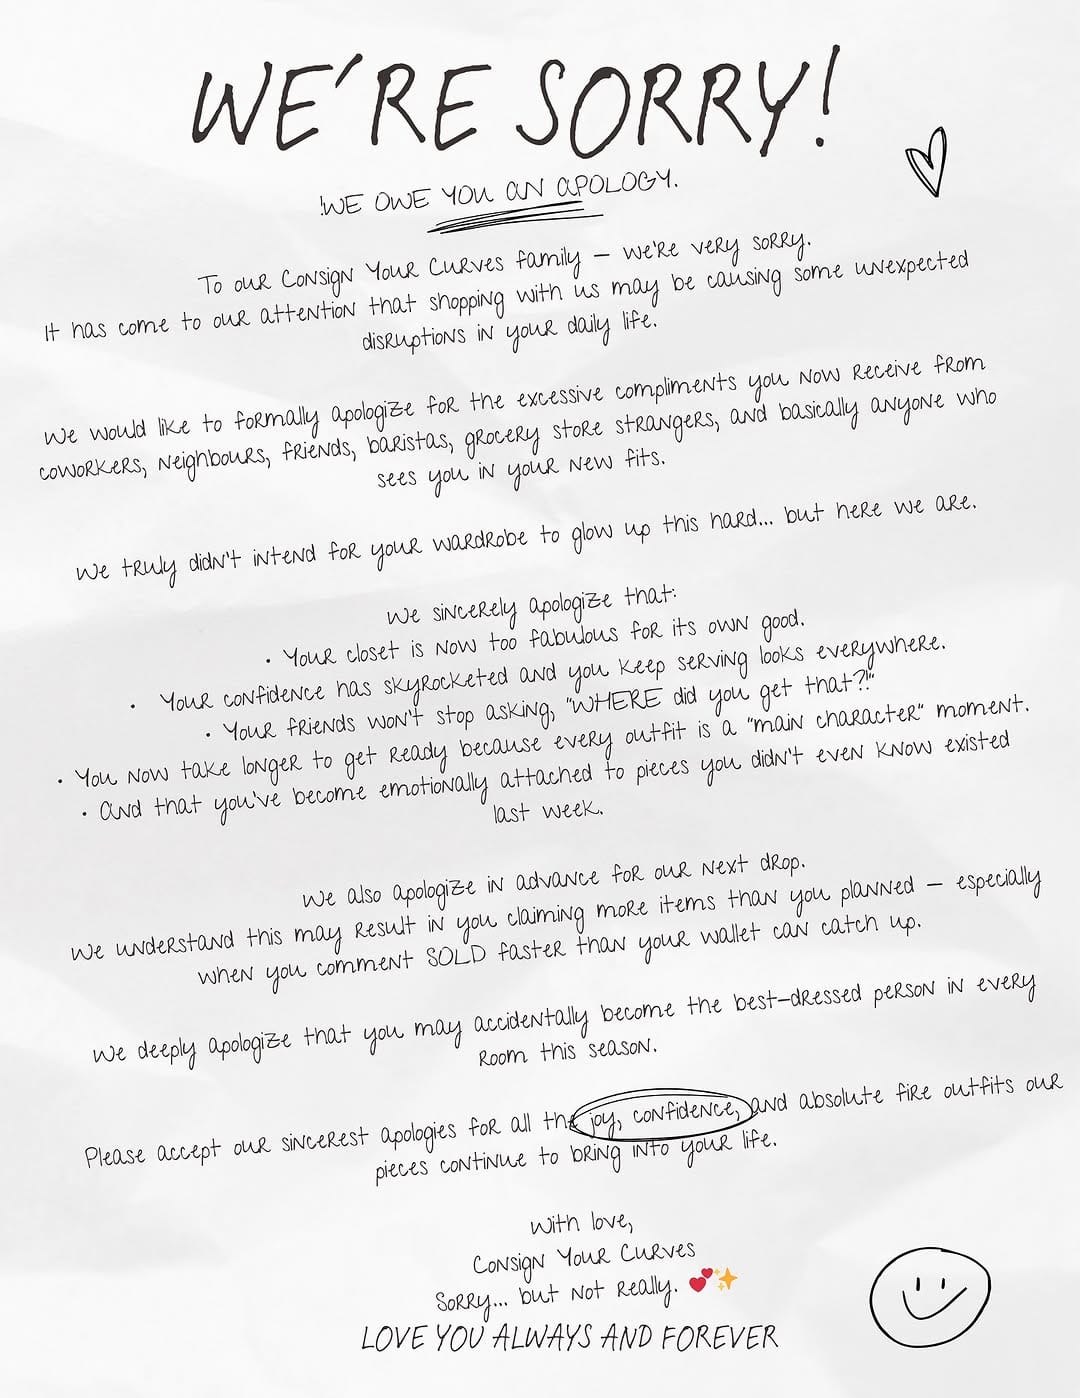 WE'RE SORRY!
!WE OWE YOU AN APOLOGY.
To our Consign Your Curves family – we're very sorry.
It has come to our attention that shopping with us may be causing some unexpected
disruptions in your daily life.
We would like to formally apologize for the excessive compliments you now receive from
coworkers, neighbours, friends, baristas, grocery store strangers, and basically anyone who
sees you in your new fits.
We truly didn't intend for your wardrobe to glow up this hard... but here we are.
We sincerely apologize that:
• Your closet is now too fabulous for its own good.
• Your confidence has skyrocketed and you keep serving looks everywhere.
• Your friends won't stop asking, "WHERE did you get that?!"
• You now take longer to get ready because every outfit is a "main character" moment.
• And that you've become emotionally attached to pieces you didn't even know existed
last week.
We also apologize in advance for our next drop.
We understand this may result in you claiming more items than you planned – especially
when you comment SOLD faster than your wallet can catch up.
We deeply apologize that you may accidentally become the best-dressed person in every
room this season.
Please accept our sincerest apologies for all the joy, confidence, and absolute fire outfits our
pieces continue to bring into your life.
With love,
Consign Your Curves
Sorry... but not really. 💕✨
LOVE YOU ALWAYS AND FOREVER